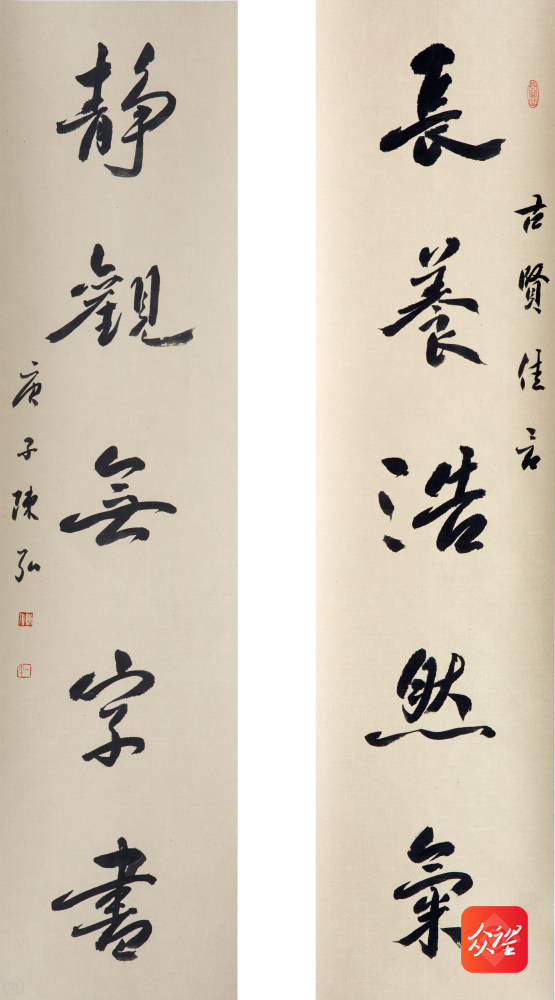 古賢佳言
長養浩然氣
靜觀無字書
庚子陳弘
众望